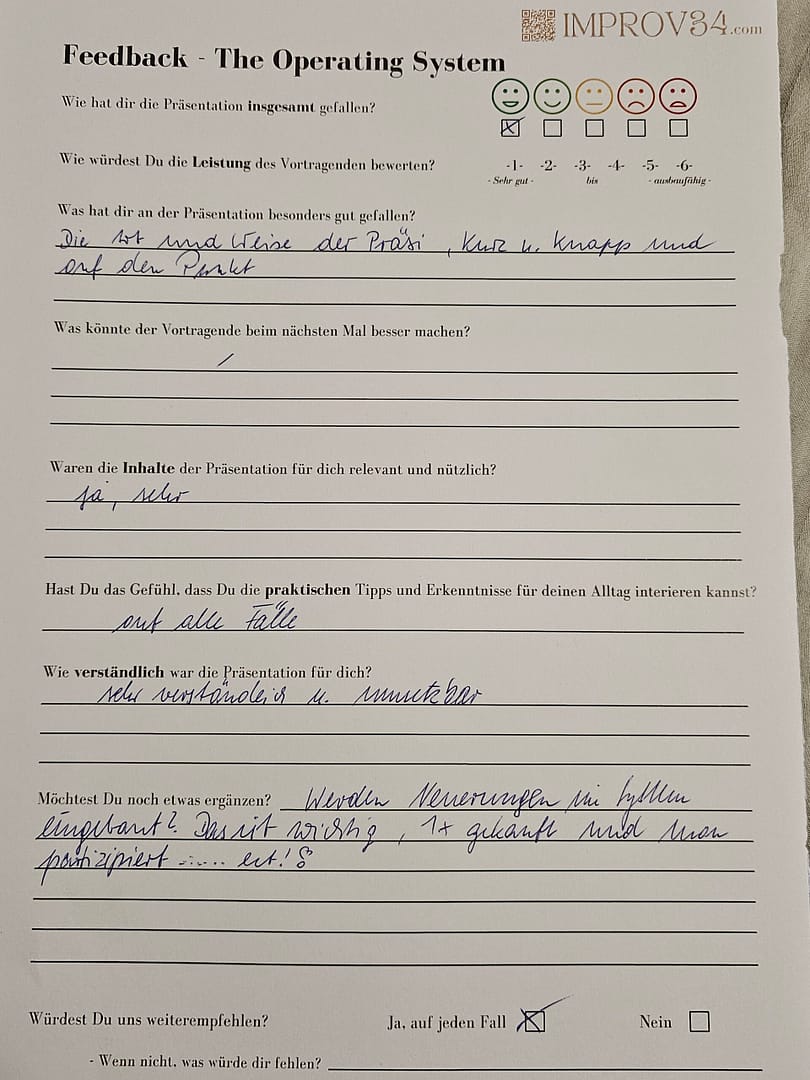 IMPROV34.com
Feedback - The Operating System
Wie hat dir die Präsentation insgesamt gefallen?
Wie würdest Du die Leistung des Vortragenden bewerten? -1- -2- -3- -4- -5- -6-
- Sehr gut - bis - ausbaufähig -
Was hat dir an der Präsentation besonders gut gefallen?
Die Art und Weise der Präsi, kurz u. knapp und
auf den Punkt
Was könnte der Vortragende beim nächsten Mal besser machen?
/
Waren die Inhalte der Präsentation für dich relevant und nützlich?
ja, sehr
Hast Du das Gefühl, dass Du die praktischen Tipps und Erkenntnisse für deinen Alltag interieren kannst?
auf alle Fälle
Wie verständlich war die Präsentation für dich?
sehr verständlich u. umsetzbar
Möchtest Du noch etwas ergänzen? Werden Neuerungen im System
eingebaut? Das ist wichtig, 1x gekauft und man
partizipiert ......
Würdest Du uns weiterempfehlen? Ja, auf jeden Fall Nein
- Wenn nicht, was würde dir fehlen?